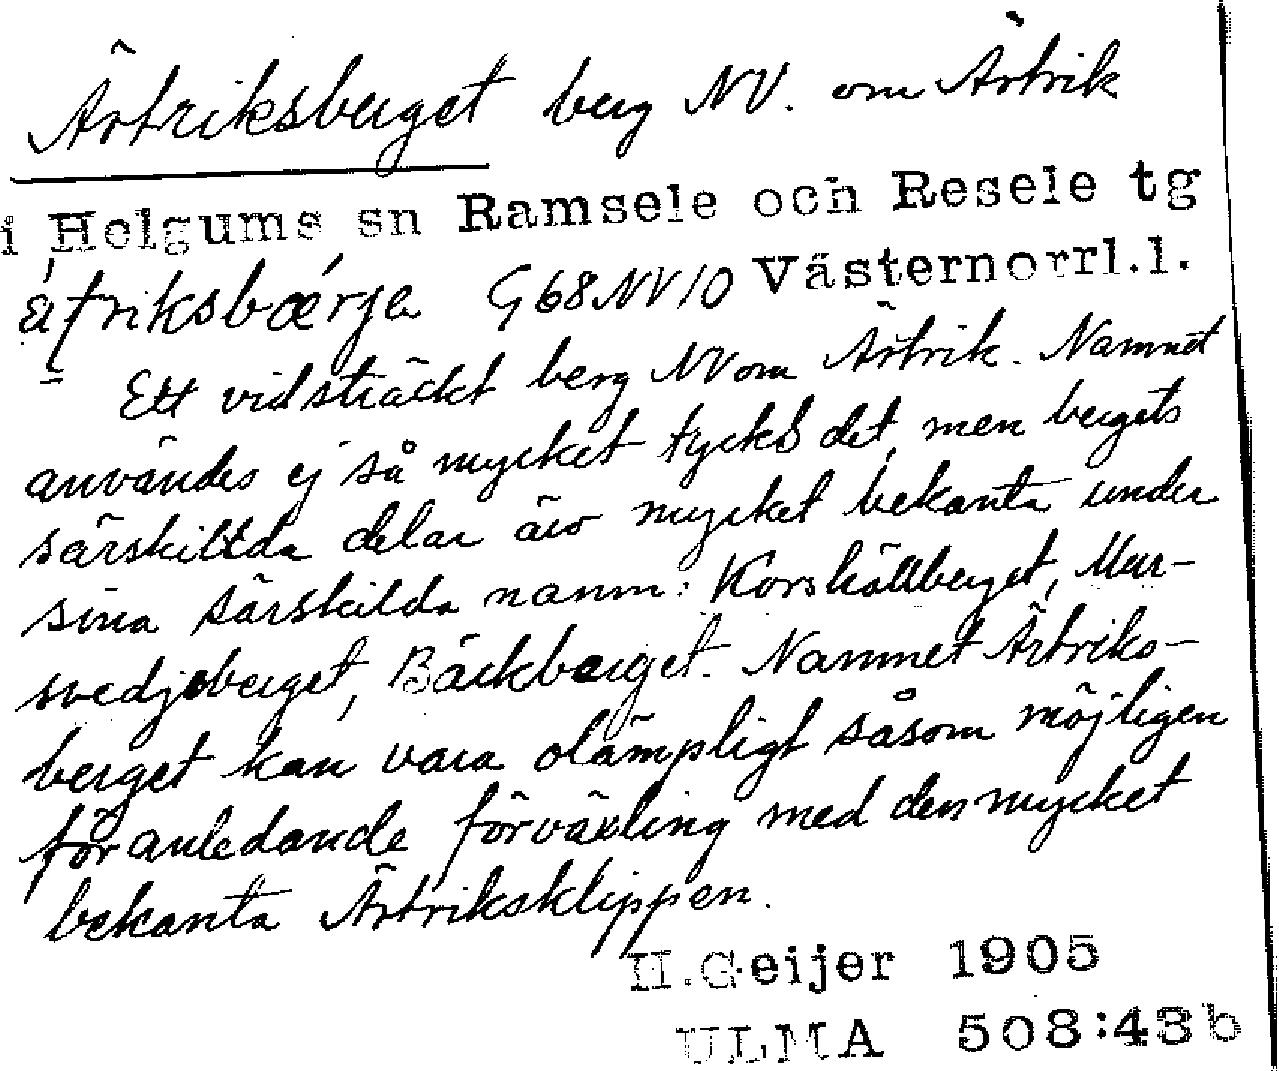 Ärtriksberget berg NV. om Ärtrik
i Helgums sn Ramsele och Resele tg
G68NV10 Västernorrl.l.
Ett vidsträckt berg NV om Ärtrik. Namnet
användes ej så mycket tycks det, men bergets
särskillda delar äro mycket bekanta under
sina särskilda namn: Korshällberget, Mar-
svedjeberget, Bäckberget. Namnet Ärtriks-
berget kan vara olämpligt såsom möjligen
föranledande förväxling med den mycket
bekanta Ärtriksklippen.
H. Geijer 1905
ULMA 508:43b